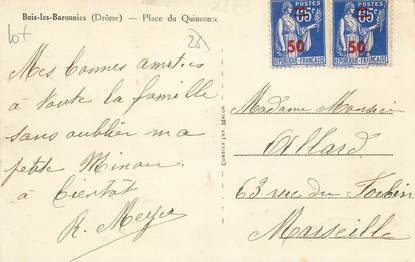 Buis-les-Baronnies (Drôme) — Place du Quinconce
lot
28
Mes bonnes amitiés
à toute la famille
sans oublier ma
petite Minou
à bientôt
R. Meyer
65c 65c
50 50
REPUBLIQUE FRANÇAISE REPUBLIQUE FRANÇAISE
Madame Monsieur
Allard
63 rue du Tochin
Marseille